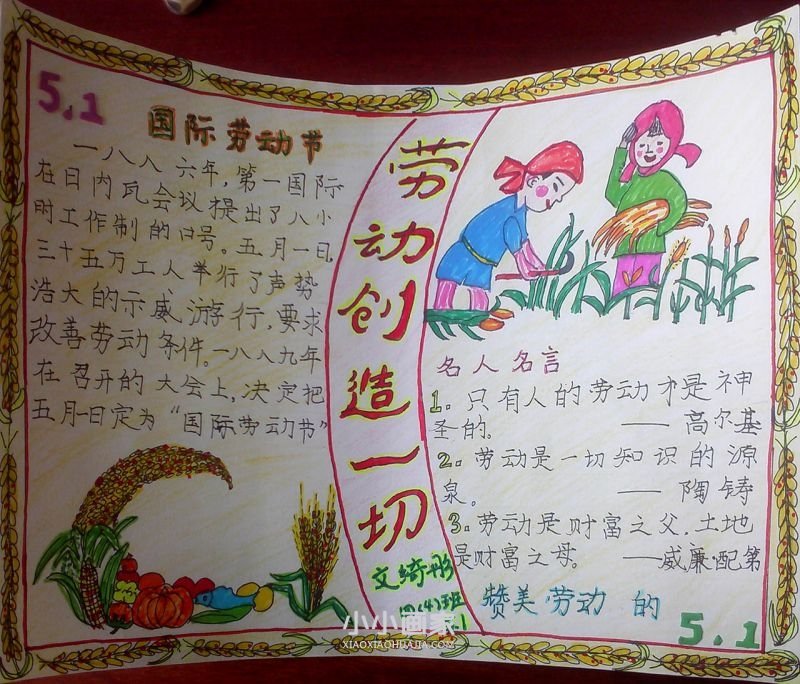 5.1
国际劳动节
一八八六年，第一国际
在日内瓦会议提出了八小
时工作制的口号。五月一日，
三十五万工人举行了声势
浩大的示威游行，要求
改善劳动条件。一八八九年
在召开的大会上，决定把
五月一日定为“国际劳动节”
劳动创造一切
文绮彤
四(4)班
名人名言
1。只有人的劳动才是神
圣的。
——高尔基
2。劳动是一切知识的源
泉。
——陶铸
3。劳动是财富之父，土地
是财富之母。——威廉·配第
赞美劳动的
5.1
小小画家
XIAOXIAOHUAJIA.COM